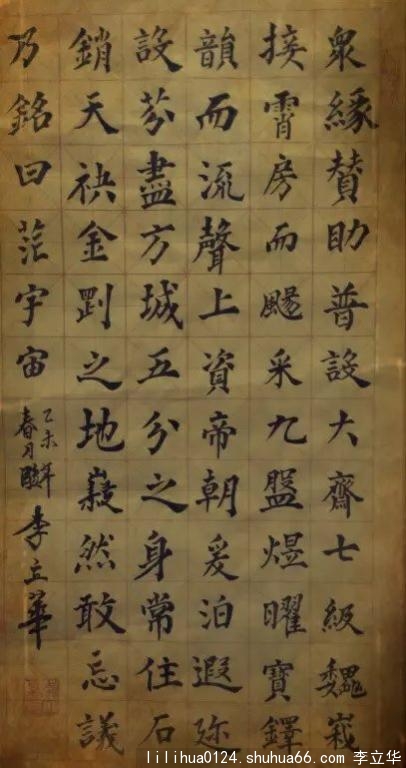 眾緣贊助普設大齋七級巍峩
接霄房而颺采九盤熤曜寶鐸
韻而流聲上資帝朝爰洎遐迩
設芬盡方城五分之身常住石
銷天袂金剹之地嶷然敢忘議
乃銘曰茫宇宙
乙未年
春月
李立華
lilihua0124.shuhua66.com 李立华